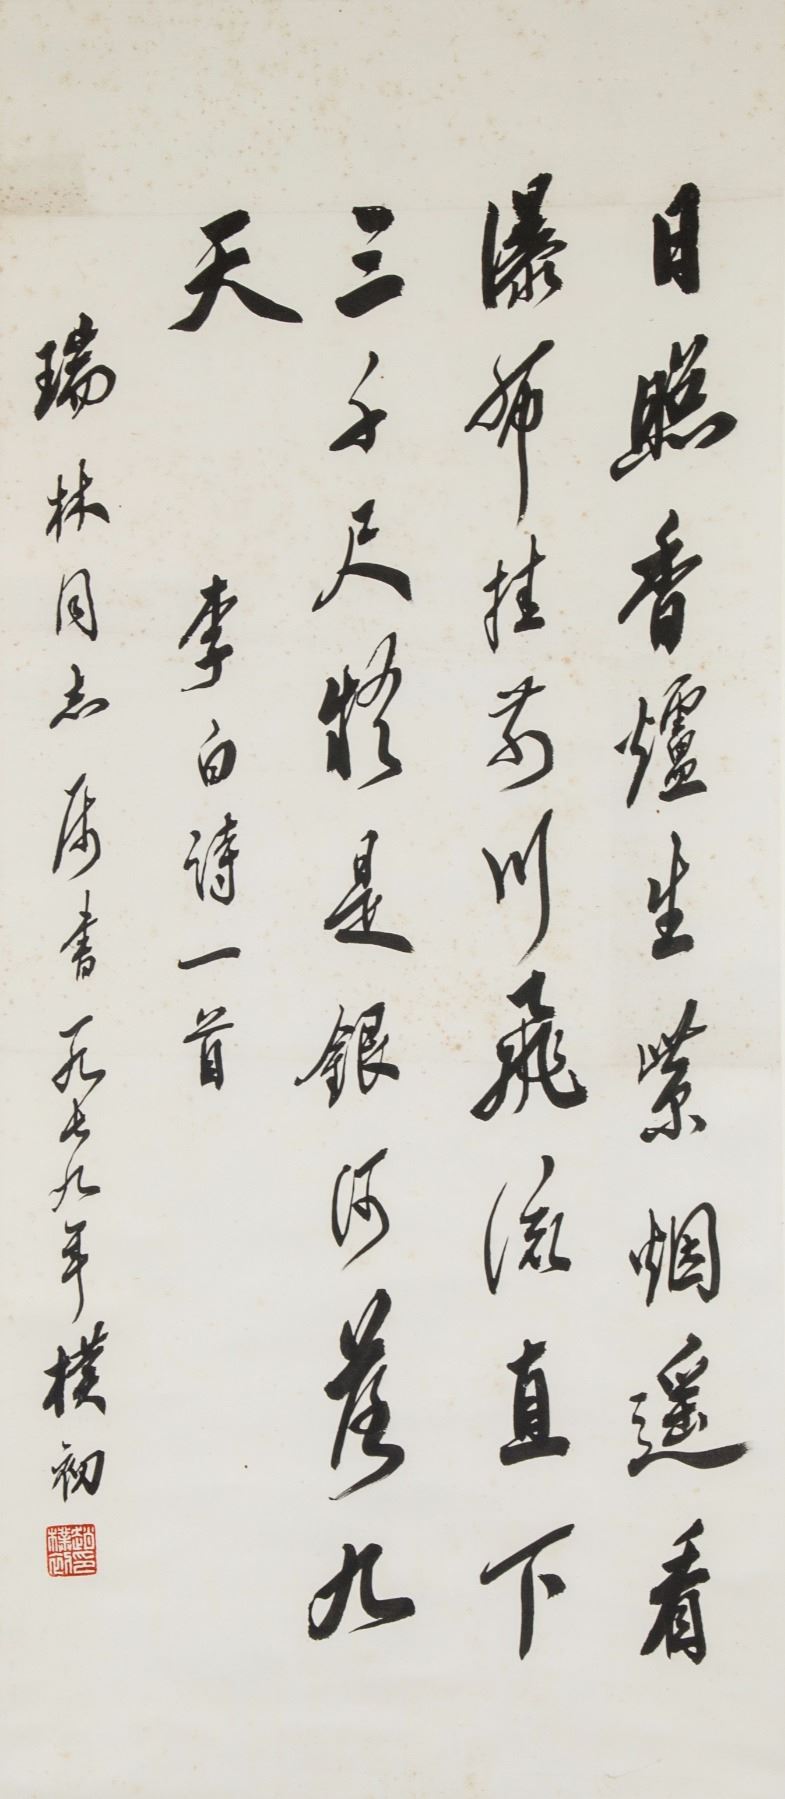 日照香爐生紫烟遥看
瀑布挂前川飛流直下
三千尺疑是銀河落九
天
李白诗一首
瑞林同志属書一九七九年樸初
趙樸初印